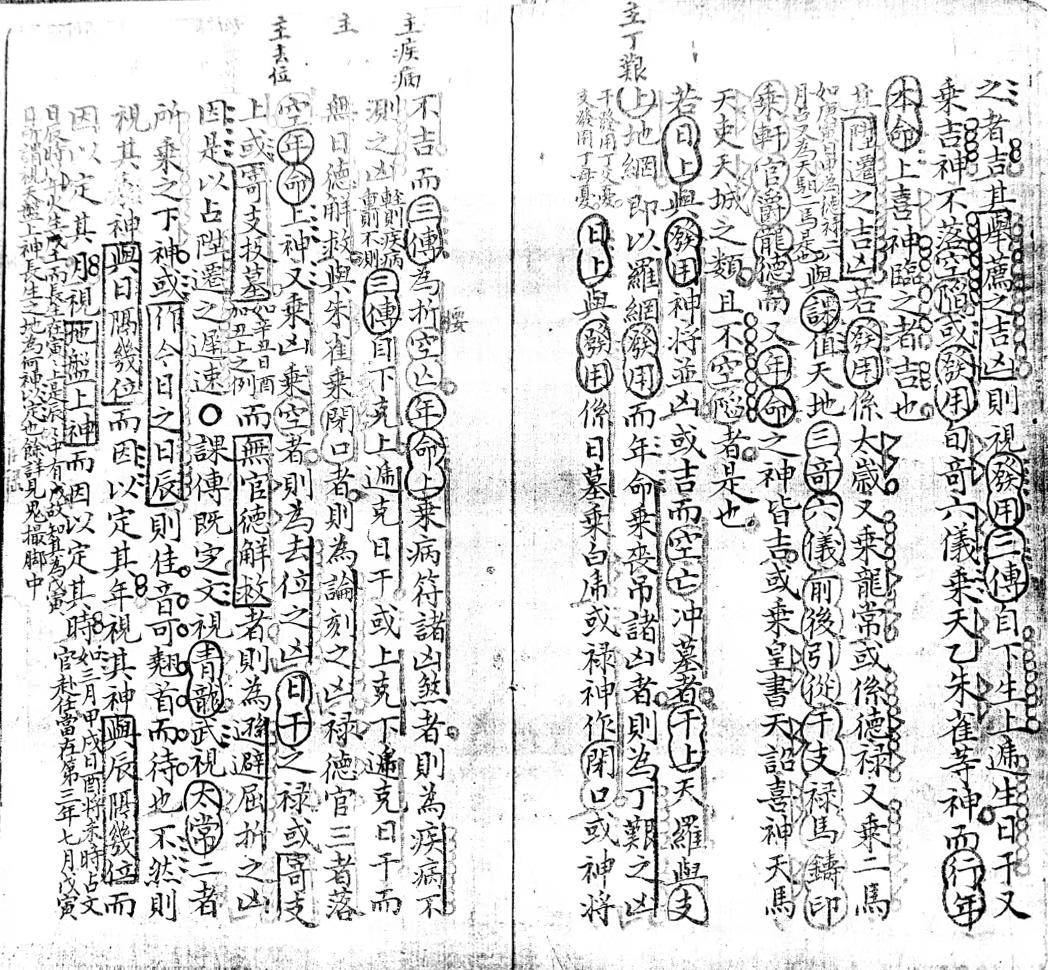 之者吉其舉薦之吉凶則視發用三傳自下生上遞生日干又
乘吉神不落空陷或發用旬奇六儀乘天乙朱雀等神而行年
本命上喜神臨之者吉也
其陞遷之吉凶若發用係太歲又乘龍常或係德祿又乘二馬
如庚寅日申為德祿二
月占又為天馹二馬是也
與課值天地三奇六儀前後引從干支祿馬鑄印
乘軒官爵龍德而又年命之神皆吉或乘皇書天詔喜神天馬
天吏天城之類且不空陷者是也
若日上與發用神將並凶或吉而空亡冲墓者干上天羅與支
主丁艱
上地網即以羅網發用而年命乘喪吊諸凶者則為丁艱之凶
干發用丁父憂
支發用丁母憂
日上與發用係日墓乘白虎或祿神作閉口或神將
主疾病
不吉而三傳為折空亡年命上乘病符諸凶煞者則為疾病不
測之凶
輕則疾病
重則不測
三傳自下克上遞克日干或上克下遞克日干而
主
無日德解救與朱雀乘閉口者則為論刻之凶祿德官三者落
主去位
空年命上神又乘凶乘空者則為去位之凶日干之祿或寄支
上或寄支投墓
如辛丑日酉
加丑上之例
而無官德解救者則為遜避屈折之凶
因是以占陞遷之遲速○課傳既定文視青龍武視太常二者
所乘之下神或作今日之日辰則佳音可翹首而待也不然則
視其神與日隔幾位而因以定其年視其神與辰隔幾位而
因以定其月視地盤上神而因以定其時
如三月甲戌日酉將未時占文
官赴任當在第三年七月戊寅
日所謂視天盤上神長生之地為何神以定也餘詳見鬼撮脚中